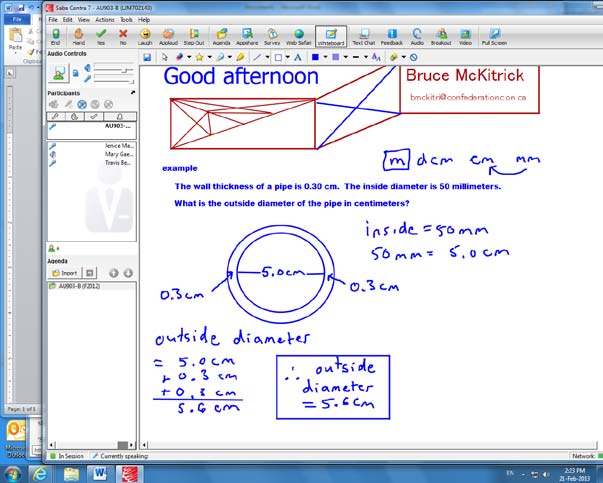 Saba Centra 7 - AU903-B (LJM702143)
File Edit View Actions Tools Help
End Hand Yes No Laugh Applaud Step Out Agenda Appshare Survey Web Safari Whiteboard Text Chat Feedback Audio Breakout Video Full Screen
Paste
Audio Controls
Participants
AU903-...
Jenice Ma...
Mary Gae...
Travis Be...
Agenda
Import
AU903-B (F2012)
Good afternoon
Bruce McKitrick
bmckitri@confederationc.on.ca
m dcm cm mm
example
The wall thickness of a pipe is 0.30 cm. The inside diameter is 50 millimeters.
What is the outside diameter of the pipe in centimeters?
inside = 50mm
50mm = 5.0cm
5.0cm
0.3cm 0.3cm
outside diameter
= 5.0cm
+ 0.3cm
+ 0.3cm
5.6cm
∴ outside
diameter
= 5.6cm
Page: 1 of 1
In Session Currently speaking: Network:
EN 2:23 PM
21-Feb-2013